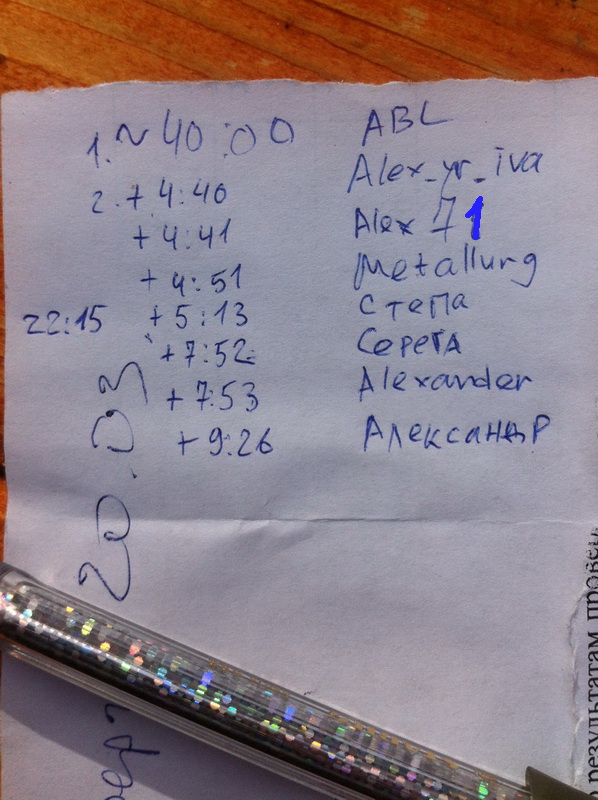 1. ~ 40:00 ABL
2. + 4:40 Alex_yr_iva
+ 4:41 Alex 71
+ 4:51 Metallurg
22:15 + 5:13 Степа
+ 7:52 Серега
+ 7:53 Alexander
+ 9:26 Александр
20.03
результатам